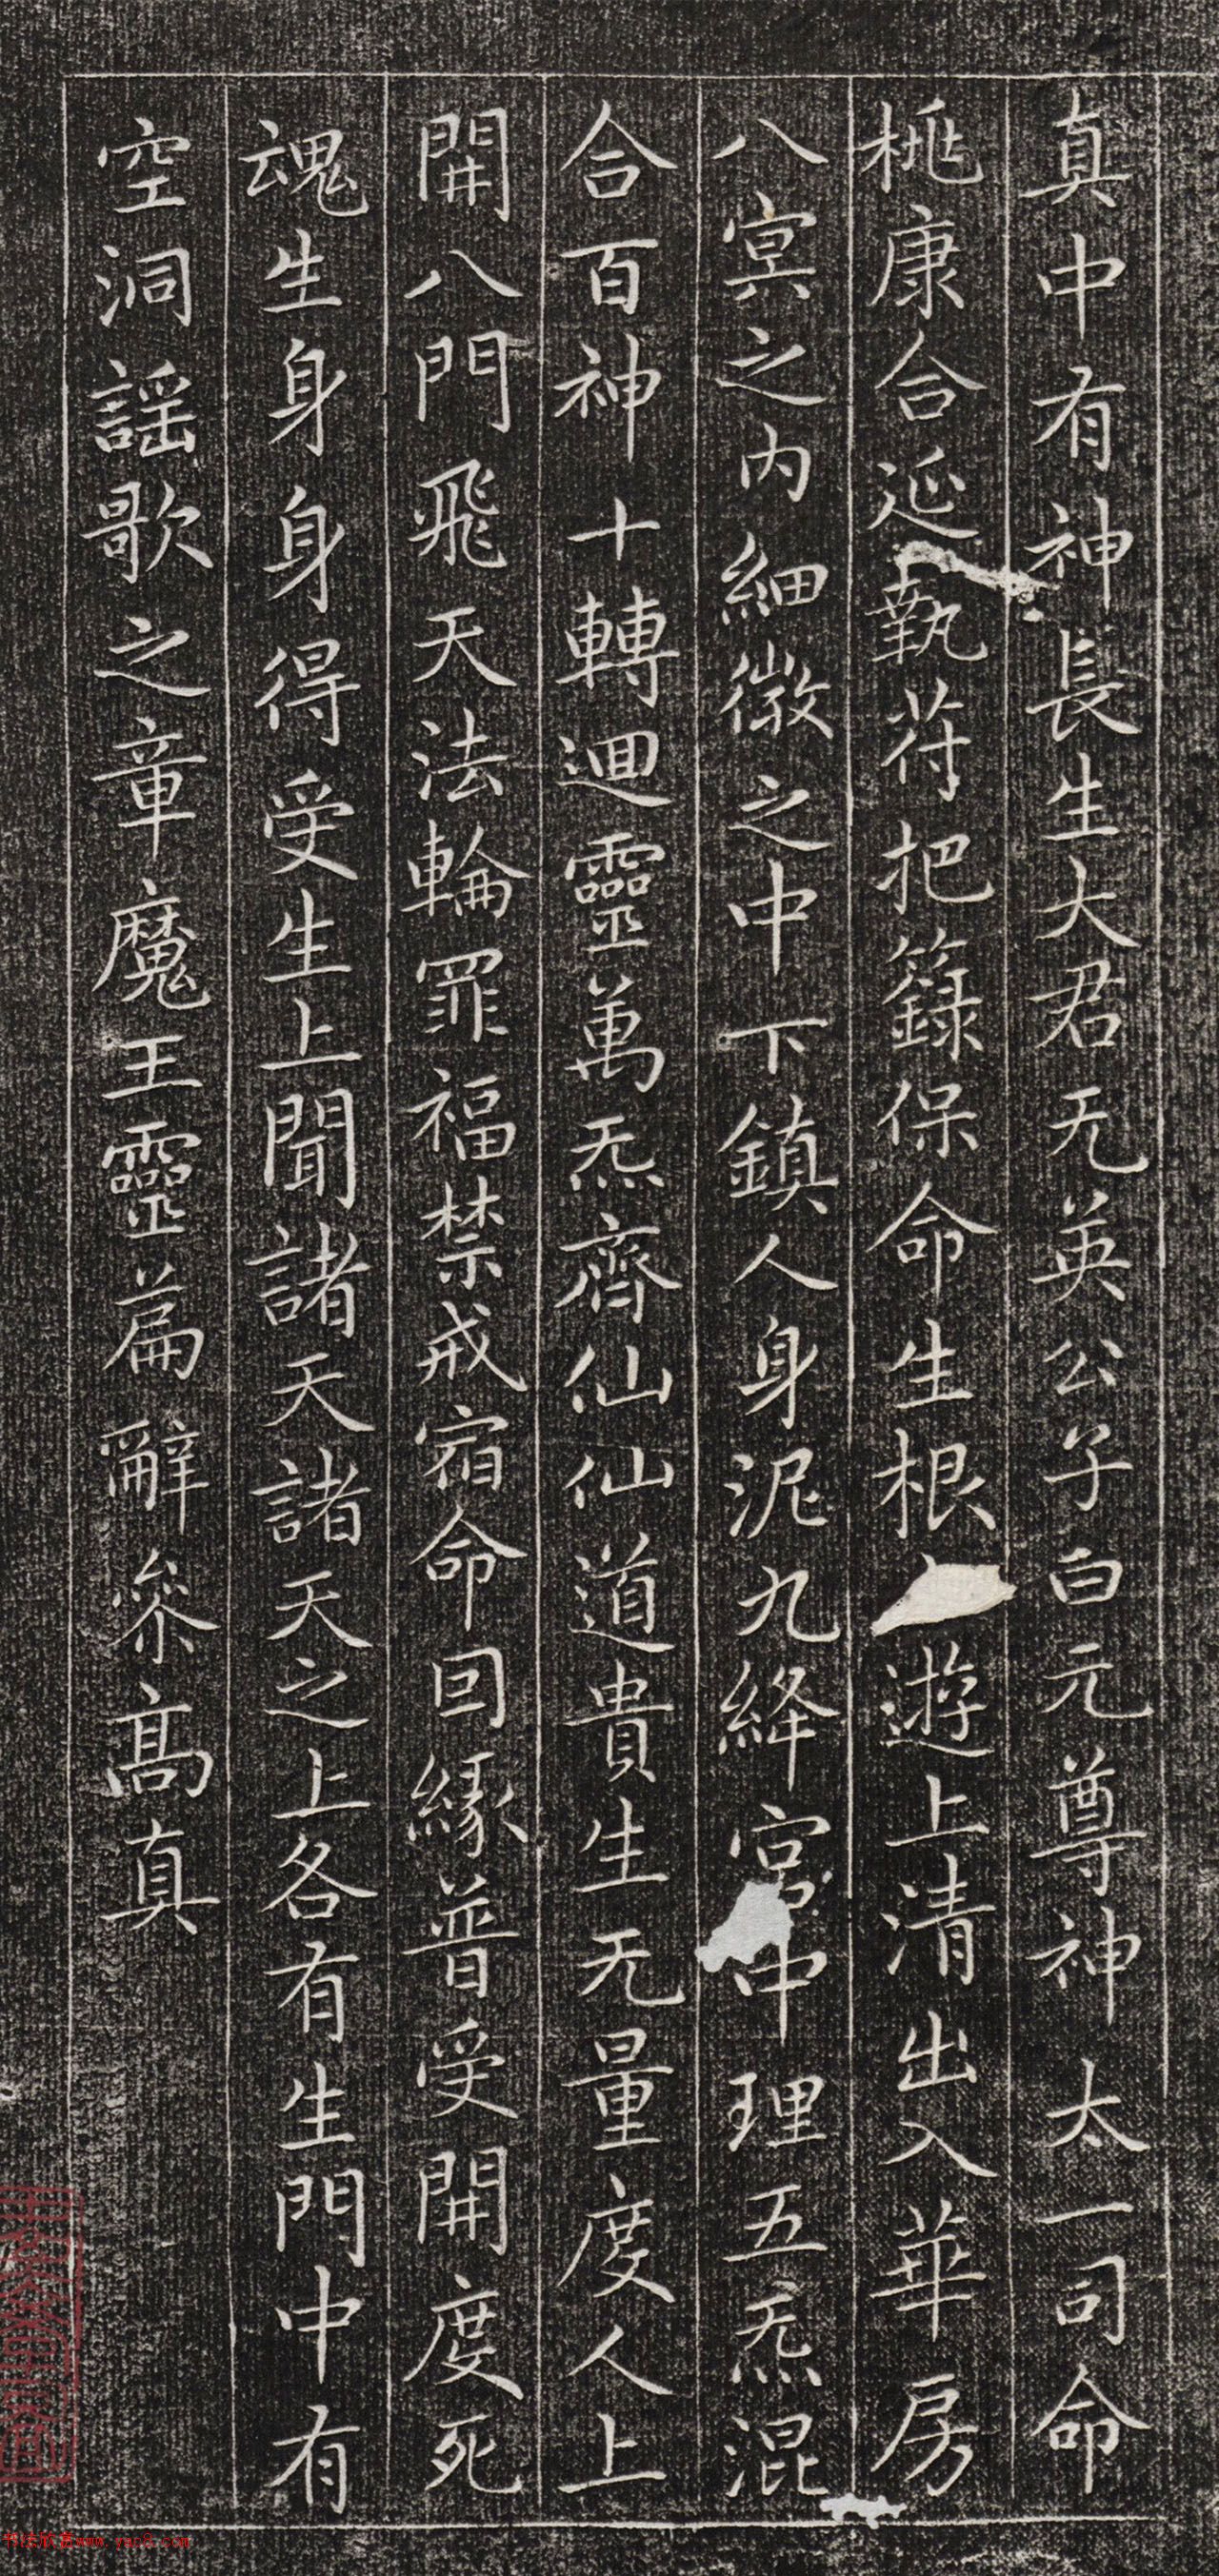 真中有神長生大君无英公子白元尊神太一司命
桃康合延執符把籙保命生根遊上清出入華房
八㝠之內細微之中下鎮人身泥九絳宮中理五炁混
合百神十轉迴靈萬炁齊仙仙道貴生无量度人上
開八門飛天法輪罪福禁戒宿命囙緣普受開度死
魂生身身得受生上聞諸天諸天之上各有生門中有
空洞謠歌之章魔王靈篇辭參髙真
书法欣赏www.yac8.com